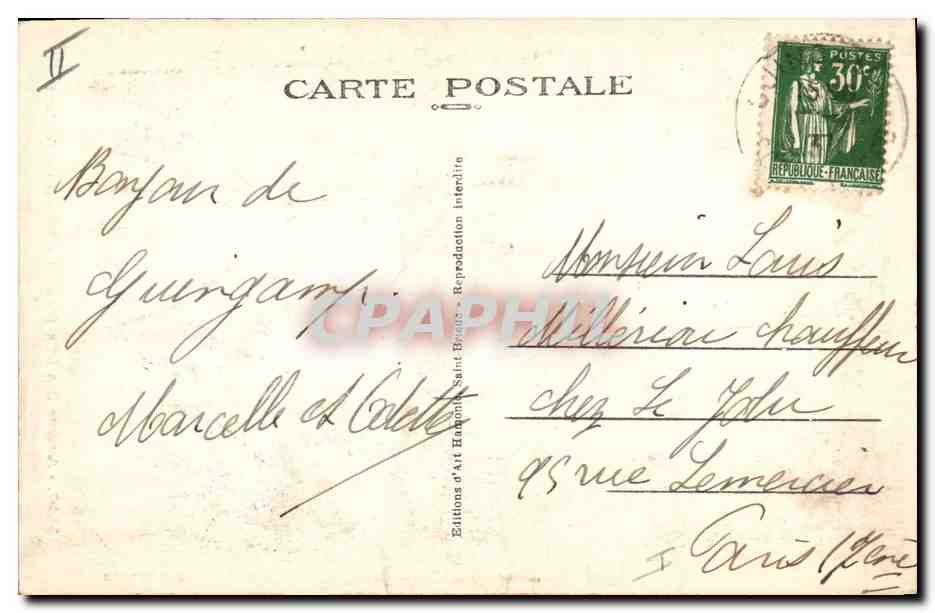 II
CARTE POSTALE
POSTES
30c
RÉPUBLIQUE·FRANÇAISE
Bonjour de
Guingamp.
Marcelle et Odette
Editions d'Art Hamonic, Saint-Brieuc - Reproduction interdite
CPAPHIL
Monsieur Louis
chauffeur
chez Le
95 rue Lemercier
Paris 17ème